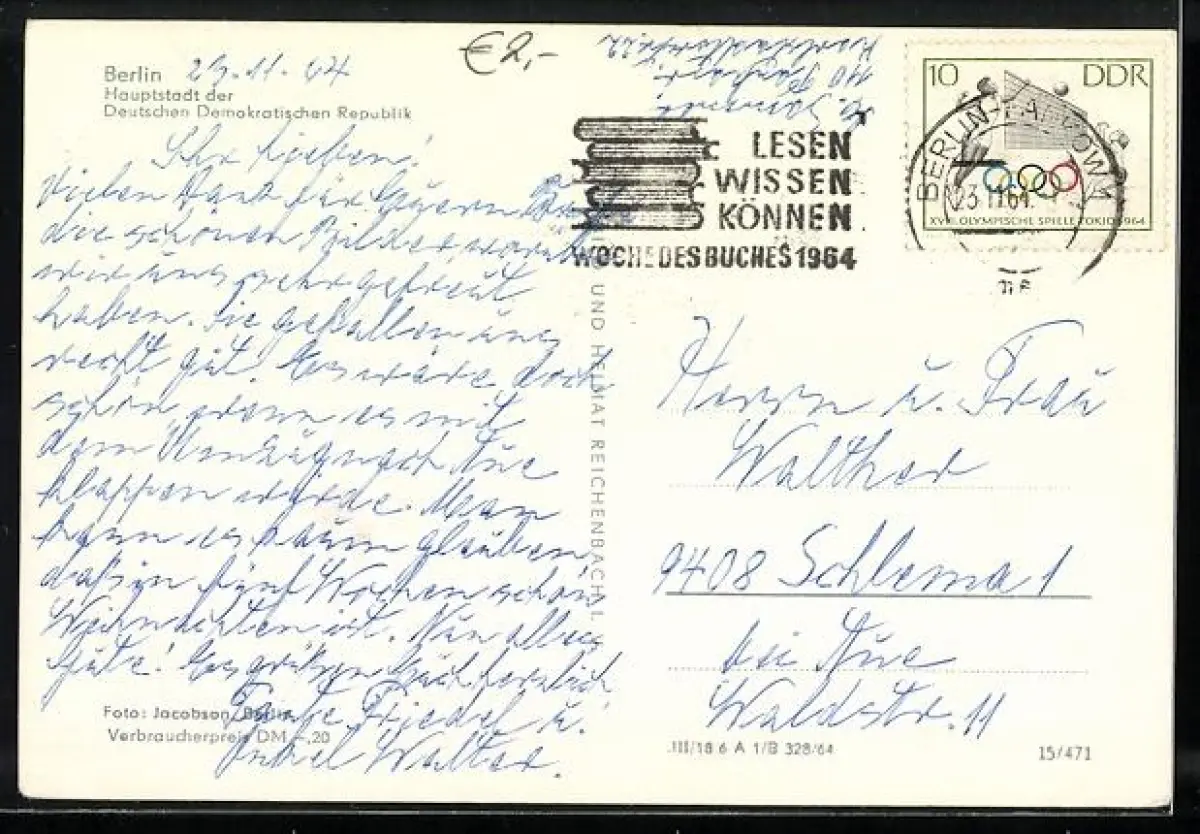 Berlin 23.11.64
Hauptstadt der
Deutschen Demokratischen Republik
€2,-
LESEN
WISSEN
KÖNNEN
WOCHE DES BUCHES 1964
10 DDR
BERLIN-PANKOW
23.11.64
XVIII. OLYMPISCHE SPIELE TOKIO 1964
Ihr Lieben!
Vielen Dank für Euern
die schönen Bilder worüber
wir uns sehr gefreut
haben. Sie gefallen uns
recht gut. Es wäre doch
schön wenn es mit
dem Umzug nach Aue
klappen würde. Man
kann es kaum glauben,
daß in fünf Wochen schon
Weihnachten ist. Nun alles
Gute! Es grüßen Euch herzlich
Tante Friedel u.
Onkel Walter.
UND HEIMAT REICHENBACH
Herrn u. Frau
Walther
9408 Schlema 1
bei Aue
Waldstr. 11
Foto: Jacobson, Berlin
Verbraucherpreis DM -,20
III/18 6 A 1/B 328/64
15/471